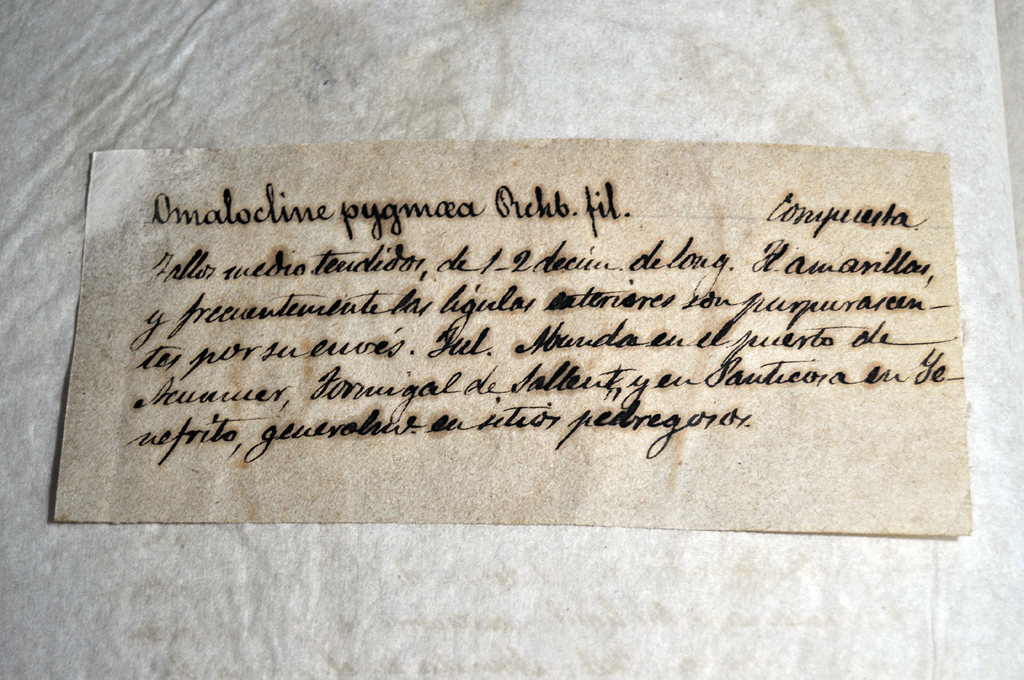 Omalocline pygmæa Rchb. fil. Compuesta.
Tallos medio tendidos, de 1-2 decím. de long. Fl. amarillas,
y frecuentemente las lígulas exteriores son purpurascen-
tes por su envés. Jul. Abunda en el puerto de
Acumuer, Formigal de Sallent, y en Panticosa en Ye-
nefrito, generalm.e en sitios pedregosos.